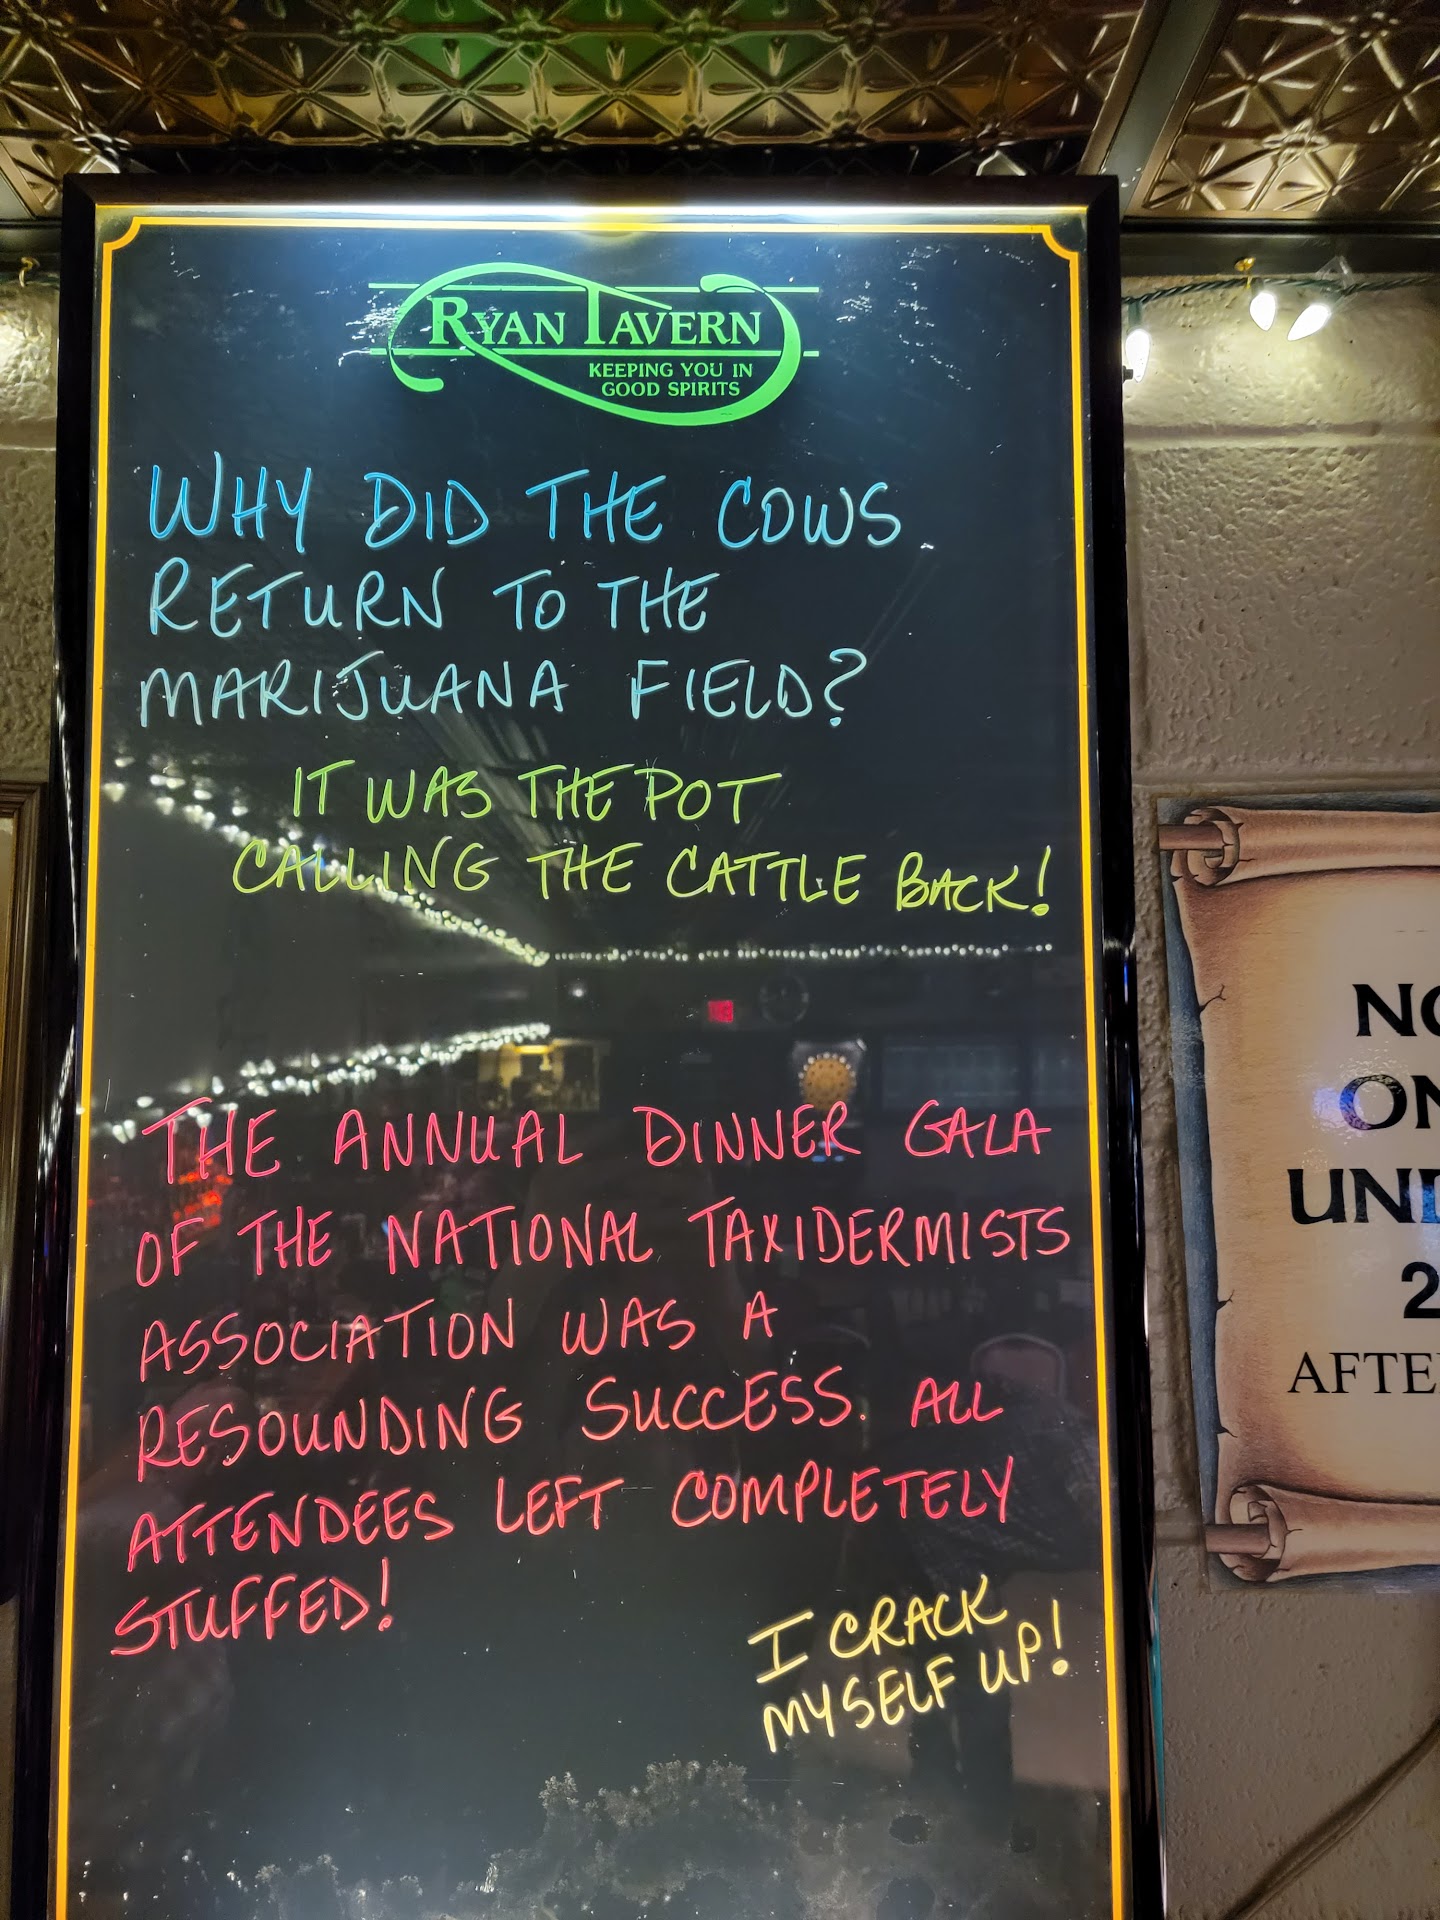 RYAN TAVERN
KEEPING YOU IN
GOOD SPIRITS
WHY DID THE COWS
RETURN TO THE
MARIJUANA FIELD?
IT WAS THE POT
CALLING THE CATTLE BACK!
THE ANNUAL DINNER GALA
OF THE NATIONAL TAXIDERMISTS
ASSOCIATION WAS A
RESOUNDING SUCCESS. ALL
ATTENDEES LEFT COMPLETELY
STUFFED!
I CRACK
MYSELF UP!